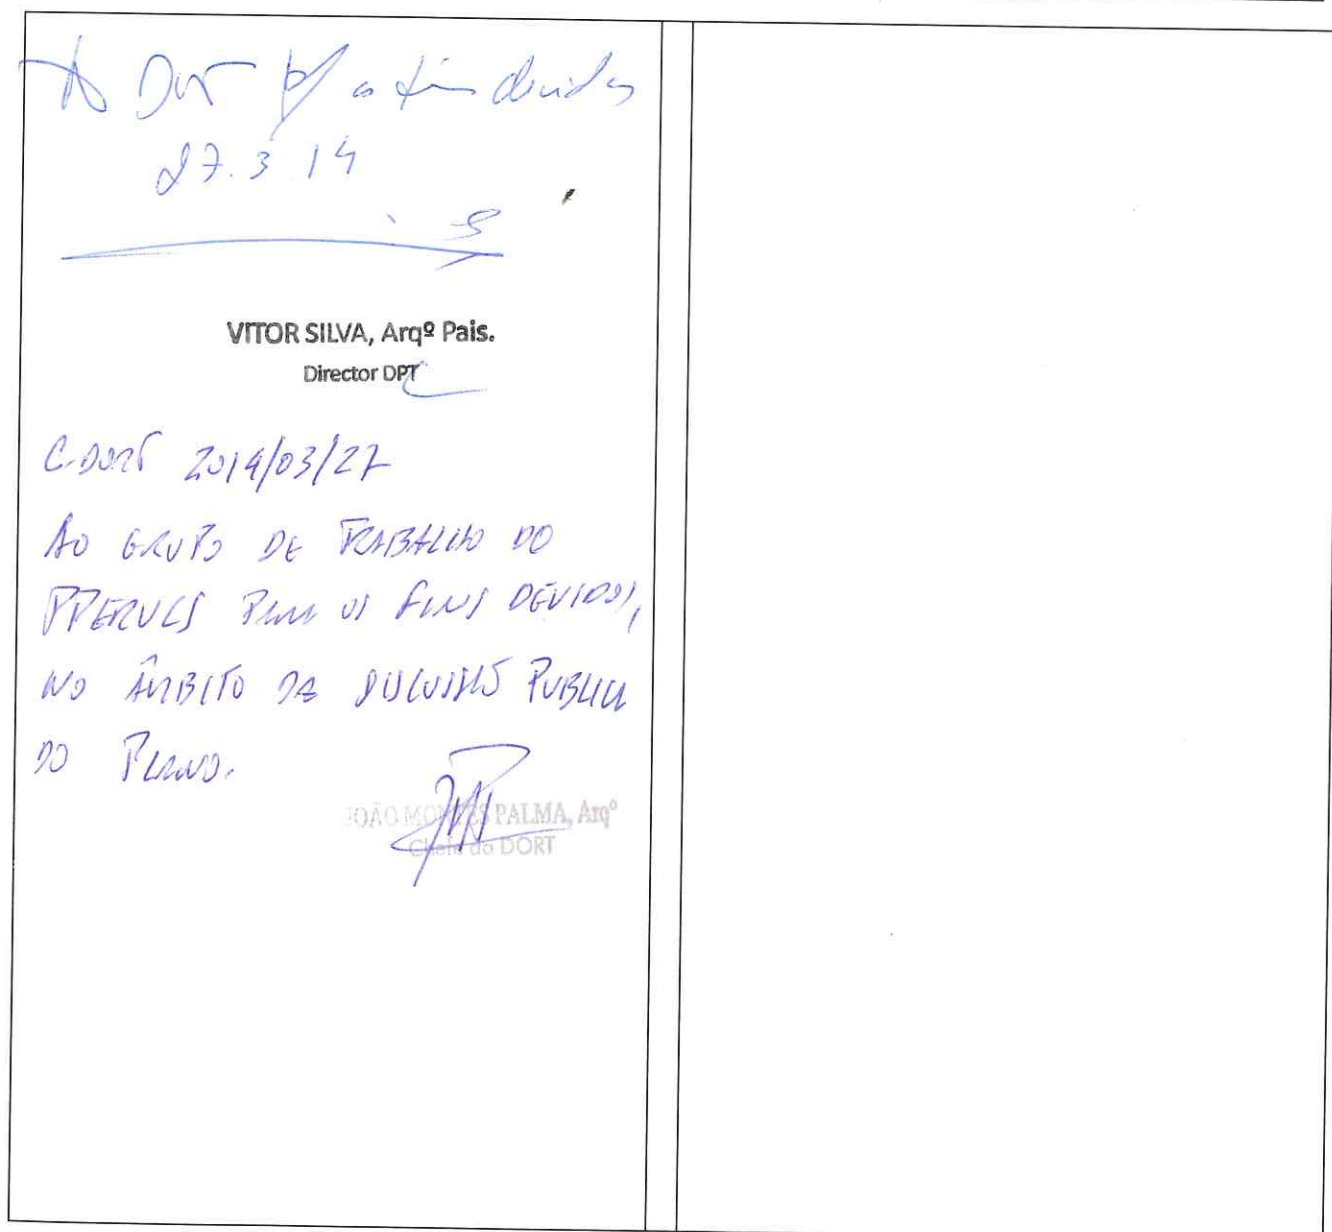 À DORT p/ os fins devidos
27.3.14
VITOR SILVA, Arqº Pais.
Director DPT
C-DORT 2014/03/27
AO GRUPO DE TRABALHO DO
PPERUCS PARA OS FINS DEVIDOS,
NO ÂMBITO DA DISCUSSÃO PUBLICA
DO PLANO.
JOÃO MONTES PALMA, Arqº
Chefe do DORT